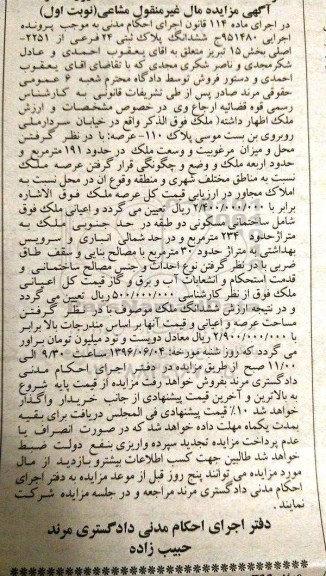 آگهی مزایده مال غیرمنقول مشاعی(نوبت اول)
در اجرای ماده ۱۱۴ قانون اجرای احکام مدنی به موجب پرونده
اجرایی ۹۵۱۴۸۰ج ششدانگ پلاک ثبتی ۲۲ فرعی از ۲۲۵۱-
اصلی بخش ۱۵ تبریز متعلق به آقای یعقوب احمدی و عادل
شکرمجدی و ناصر شکری مجدی که با تقاضای آقای یعقوب
احمدی و دستور فروش توسط دادگاه محترم شعبه ۶ عمومی
حقوقی مرند صادر پس از طی تشریفات قانونی به کارشناس
رسمی قوه قضائیه ارجاع وی در خصوص مشخصات و ارزش
ملک اظهار داشته( ملک فوق الذکر واقع در خیابان سردارملی
روبروی بن بست موسی پلاک ۱۱۰- عرصه: با در نظر گرفتن
محل و میزان مرغوبیت و وسعت ملک در حدود ۱۹۱ مترمربع و
حدود اربعه ملک و وضع و چگونگی قرار گرفتن عرصه ملک
نسبت به مناطق مختلف شهری و منطقه وقوع آن در محل نسبت به
املاک مجاور در ارزیابی قیمت کل عرصه ملک فوق الاشاره
برابر با ۲/۴۰۰/۰۰۰/۰۰۰ ریال تعیین می گردد و اعیانی ملک فوق
شامل ساختمانی مسکونی دو طبقه در حد جنوبی ملک به
متراژ حدود ۲۳۴ مترمربع و در حد شمالی انباری و سرویس
بهداشتی به متراژ حدود ۳۰ مترمربع با مصالح بنایی و سقف طاق
ضربی با در نظر گرفتن نوع احداث و جنس مصالح ساختمانی و
قدمت استحکام و انشعابات آب و برق و گاز قیمت کل اعیانی
ملک فوق از نظر کارشناسی ۵۰۰/۰۰۰/۰۰۰ ریال تعیین می گردد
و در نتیجه ارزش ششدانگ ملک موصوف با در نظر گرفتن
مساحت عرصه و اعیانی و قیمت آنها بر اساس مندرجات بالا برابر
با ۲/۹۰۰/۰۰۰/۰۰۰ ریال معادل دویست و نود میلیون تومان برآور
می گردد که روز شنبه مورخه: ۱۳۹۶/۰۶/۰۴ ساعت ۹/۳۰ الی
۱۱/۰۰ صبح از طریق مزایده در دفتر اجرای احکام مدنی
دادگستری مرند بفروش خواهد رفت مزایده از قیمت پایه شروع
به بالاترین و آخرین قیمت پیشنهادی از جانب خریدار واگذار
خواهد شد ۱۰٪ قیمت پیشنهادی فی المجلس دریافت برای بقیه
بمدت یکماه مهلت داده خواهد شد که در صورت انصراف یا
عدم پرداخت مزایده تجدید سپرده واریزی بنفع دولت ضبط
خواهد شد طالبین جهت کسب اطلاعات بیشتر و بازدید از مال
مورد مزایده می توانند پنج روز قبل از موعد مزایده به دفتر اجرای
احکام مدنی دادگستری مرند مراجعه و در جلسه مزایده شرکت
نمایند.
دفتر اجرای احکام مدنی دادگستری مرند
حبیب زاده